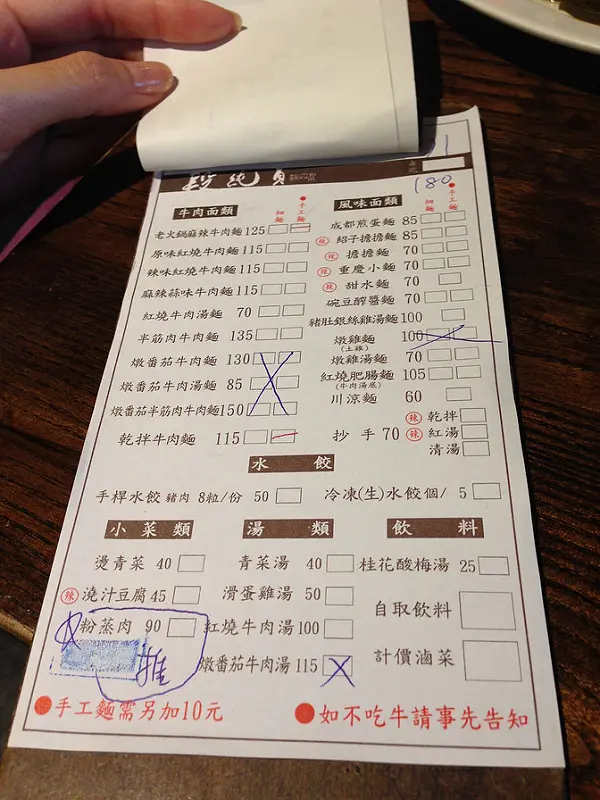 段純貞
180
牛肉麵類
細麵 手工麵
老火鍋麻辣牛肉麵 125
原味紅燒牛肉麵 115
辣味紅燒牛肉麵 115
麻辣蒜味牛肉麵 115
紅燒牛肉湯麵 70
半筋肉牛肉麵 135
燉番茄牛肉麵 130
燉番茄牛肉湯麵 85
燉番茄半筋肉牛肉麵 150
乾拌牛肉麵 115
風味麵類
細麵 手工麵
成都煎蛋麵 85
辣 紹子擔擔麵 85
辣 擔擔麵 70
辣 重慶小麵 70
辣 甜水麵 70
碗豆醡醬麵 70
豬肚銀絲雞湯麵 100
燉雞麵 100
(土雞)
燉雞湯麵 70
紅燒肥腸麵 105
(牛肉湯底)
川涼麵 60
抄手 70
辣 乾拌
辣 紅湯
清湯
水餃
手桿水餃 豬肉 8粒/份 50
冷凍(生)水餃個/ 5
小菜類
燙青菜 40
辣 澆汁豆腐 45
粉蒸肉 90
推
湯類
青菜湯 40
滑蛋雞湯 50
紅燒牛肉湯 100
燉番茄牛肉湯 115
飲料
桂花酸梅湯 25
自取飲料
計價滷菜
手工麵需另加10元
如不吃牛請事先告知